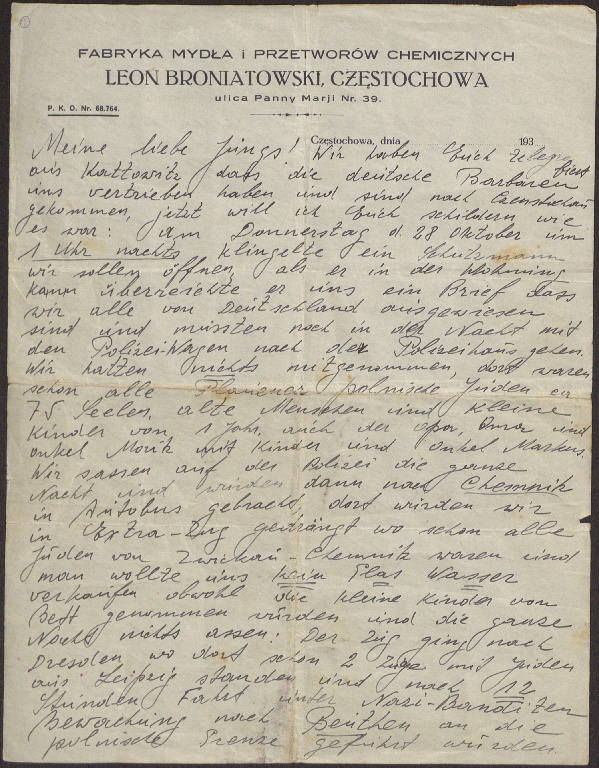 FABRYKA MYDŁA i PRZETWORÓW CHEMICZNYCH
LEON BRONIATOWSKI, CZĘSTOCHOWA
ulica Panny Marji Nr. 39.
P. K. O. Nr. 68.764.
Częstochowa, dnia 193
Meine liebe Jungs! Wir haben Euch telegrafiert
aus Kattowitz dass die deutsche Barbaren
uns vertrieben haben und sind nach Czenstochau
gekommen, jetzt will ich Euch schildern wie
es war: Am Donnerstag d. 28 Oktober um
1 Uhr nachts klingelte ein Schutzmann
wir sollen öffnen, als er in der Wohnung
kamm überreichte er uns ein Brief dass
wir alle von Deutschland ausgewiesen
sind und mussten noch in der Nacht mit
den Polizei-Wagen nach der Polizeihaus gehen.
Wir hatten nichts mitgenommen, dort waren
schon alle Plauener polnische Juden ca
75 Seelen, alte Menschen und kleine
Kinder von 1 Jahr, auch der Opa, Oma und
onkel Moritz mit Kinder und Onkel Markus.
Wir sassen auf der Polizei die ganze
Nacht und wurden dann nach Chemnitz
in Autobus gebracht, dort wurden wir
in Extra-Zug gedrängt wo schon alle
Juden von Zwickau-Chemnitz waren und
man wollte uns kein Glas Wasser
verkaufen obwohl die kleine Kinder von
Bett genommen wurden und die ganze
Nacht nichts assen! Der Zug ging nach
Dresden wo dort schon 2 Züge mit Juden
aus Leipzig standen und nach 12
Stunden Fahrt unter Nazi-Banditen
Bewachung nach Beuthen an die
polnische Grenze geführt wurden.